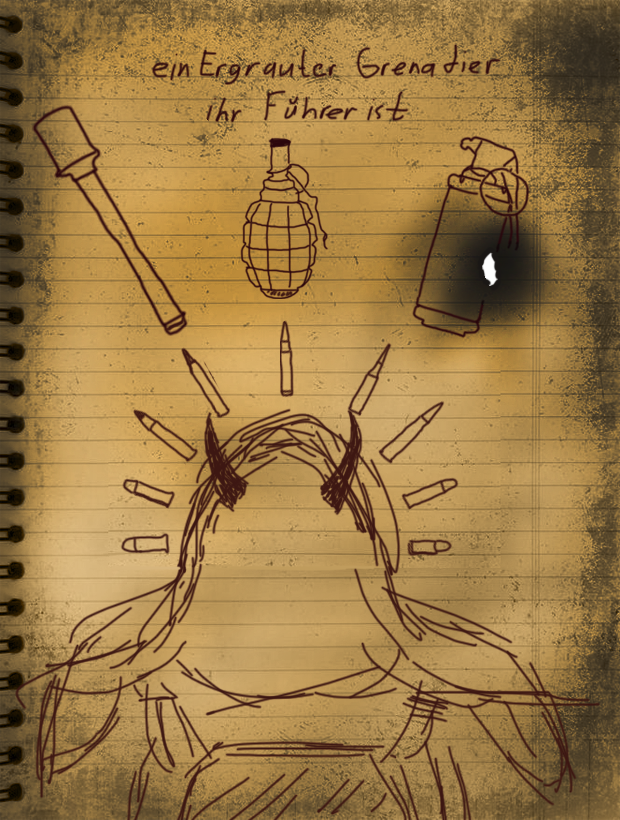 ein Ergrauter Grenadier
ihr Führer ist